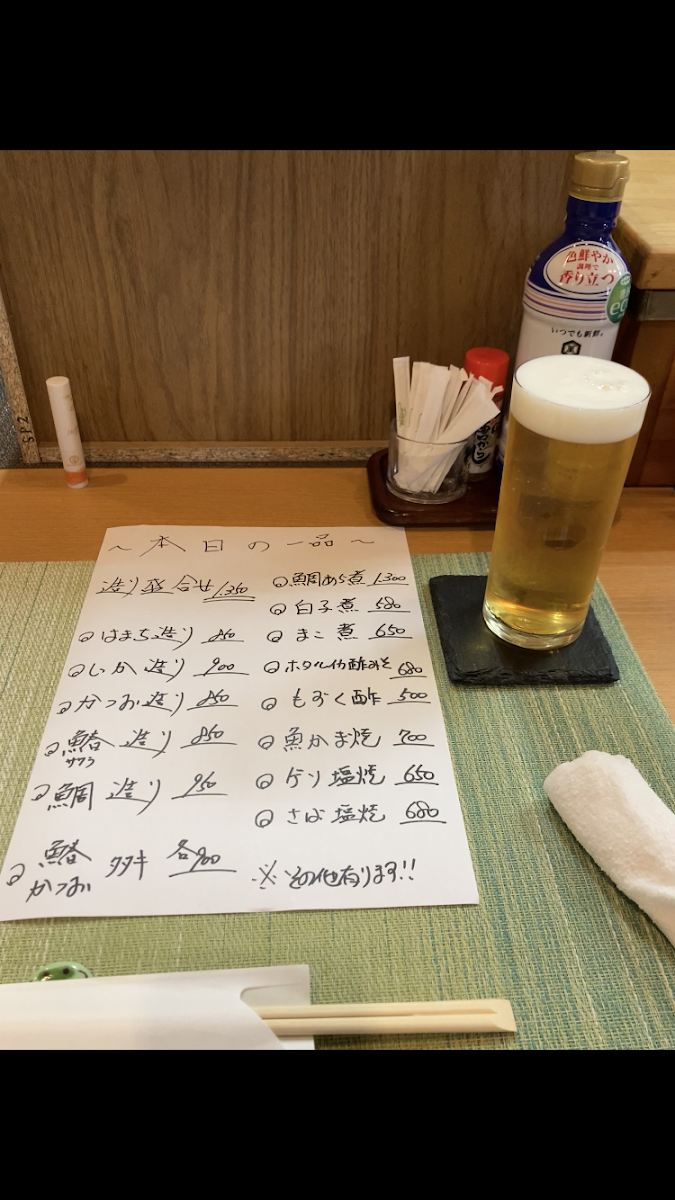 色鮮やか
調理で
香り立つ
いつでも新鮮。
SP2
～本日の一品～
造り盛合せ 1,350
はまち造り 850
いか造り 900
かつお造り 850
鰆 造り 850
サワラ
鯛 造り 950
鰆 タタキ 各900
かつお
鯛あら煮 1,300
白子煮 580
まこ煮 650
ホタルイカ酢みそ 680
もずく酢 500
魚かま焼 700
ゲソ塩焼 650
さば塩焼 680
※その他有ります!!